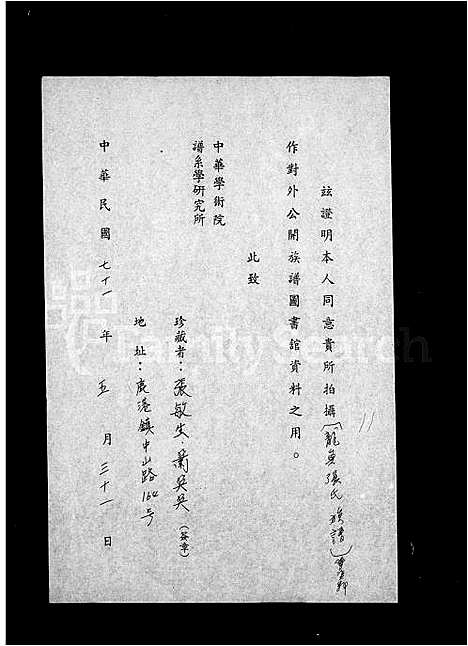 茲證明本人同意貴所拍攝(龍泉張氏族譜)
作對外公開族譜圖書館資料之用。
此致
中華學術院
譜系學研究所
珍藏者：張敏生．蕭吳吳(簽章)
地址：鹿港鎮中山路164号
中華民國七十一年五月三十一日
11
Family Search